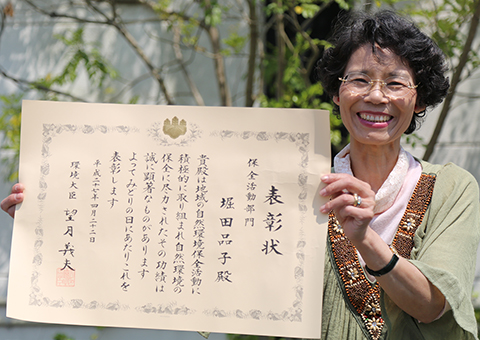 表彰状
保全活動部門
堀田品子殿
貴殿は地域の自然環境保全活動に
積極的に取り組まれ自然環境の
保全に尽力されたその功績は
誠に顕著なものがあります
よってみどりの日にあたりこれを
表彰します
平成二十七年四月二十二日
環境大臣 望月義夫